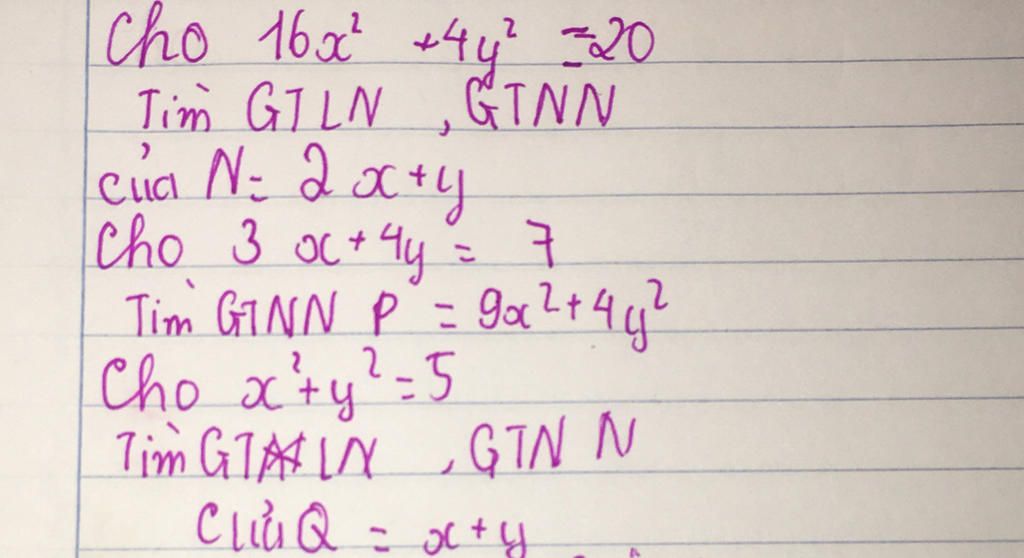 Cho 16x² + 4y² = 20
Tìm GTLN , GTNN
của N = 2x + y
Cho 3x + 4y = 7
Tìm GTNN P = 9x² + 4y²
Cho x² + y² = 5
Tìm GTLN , GTNN
của Q = x + y